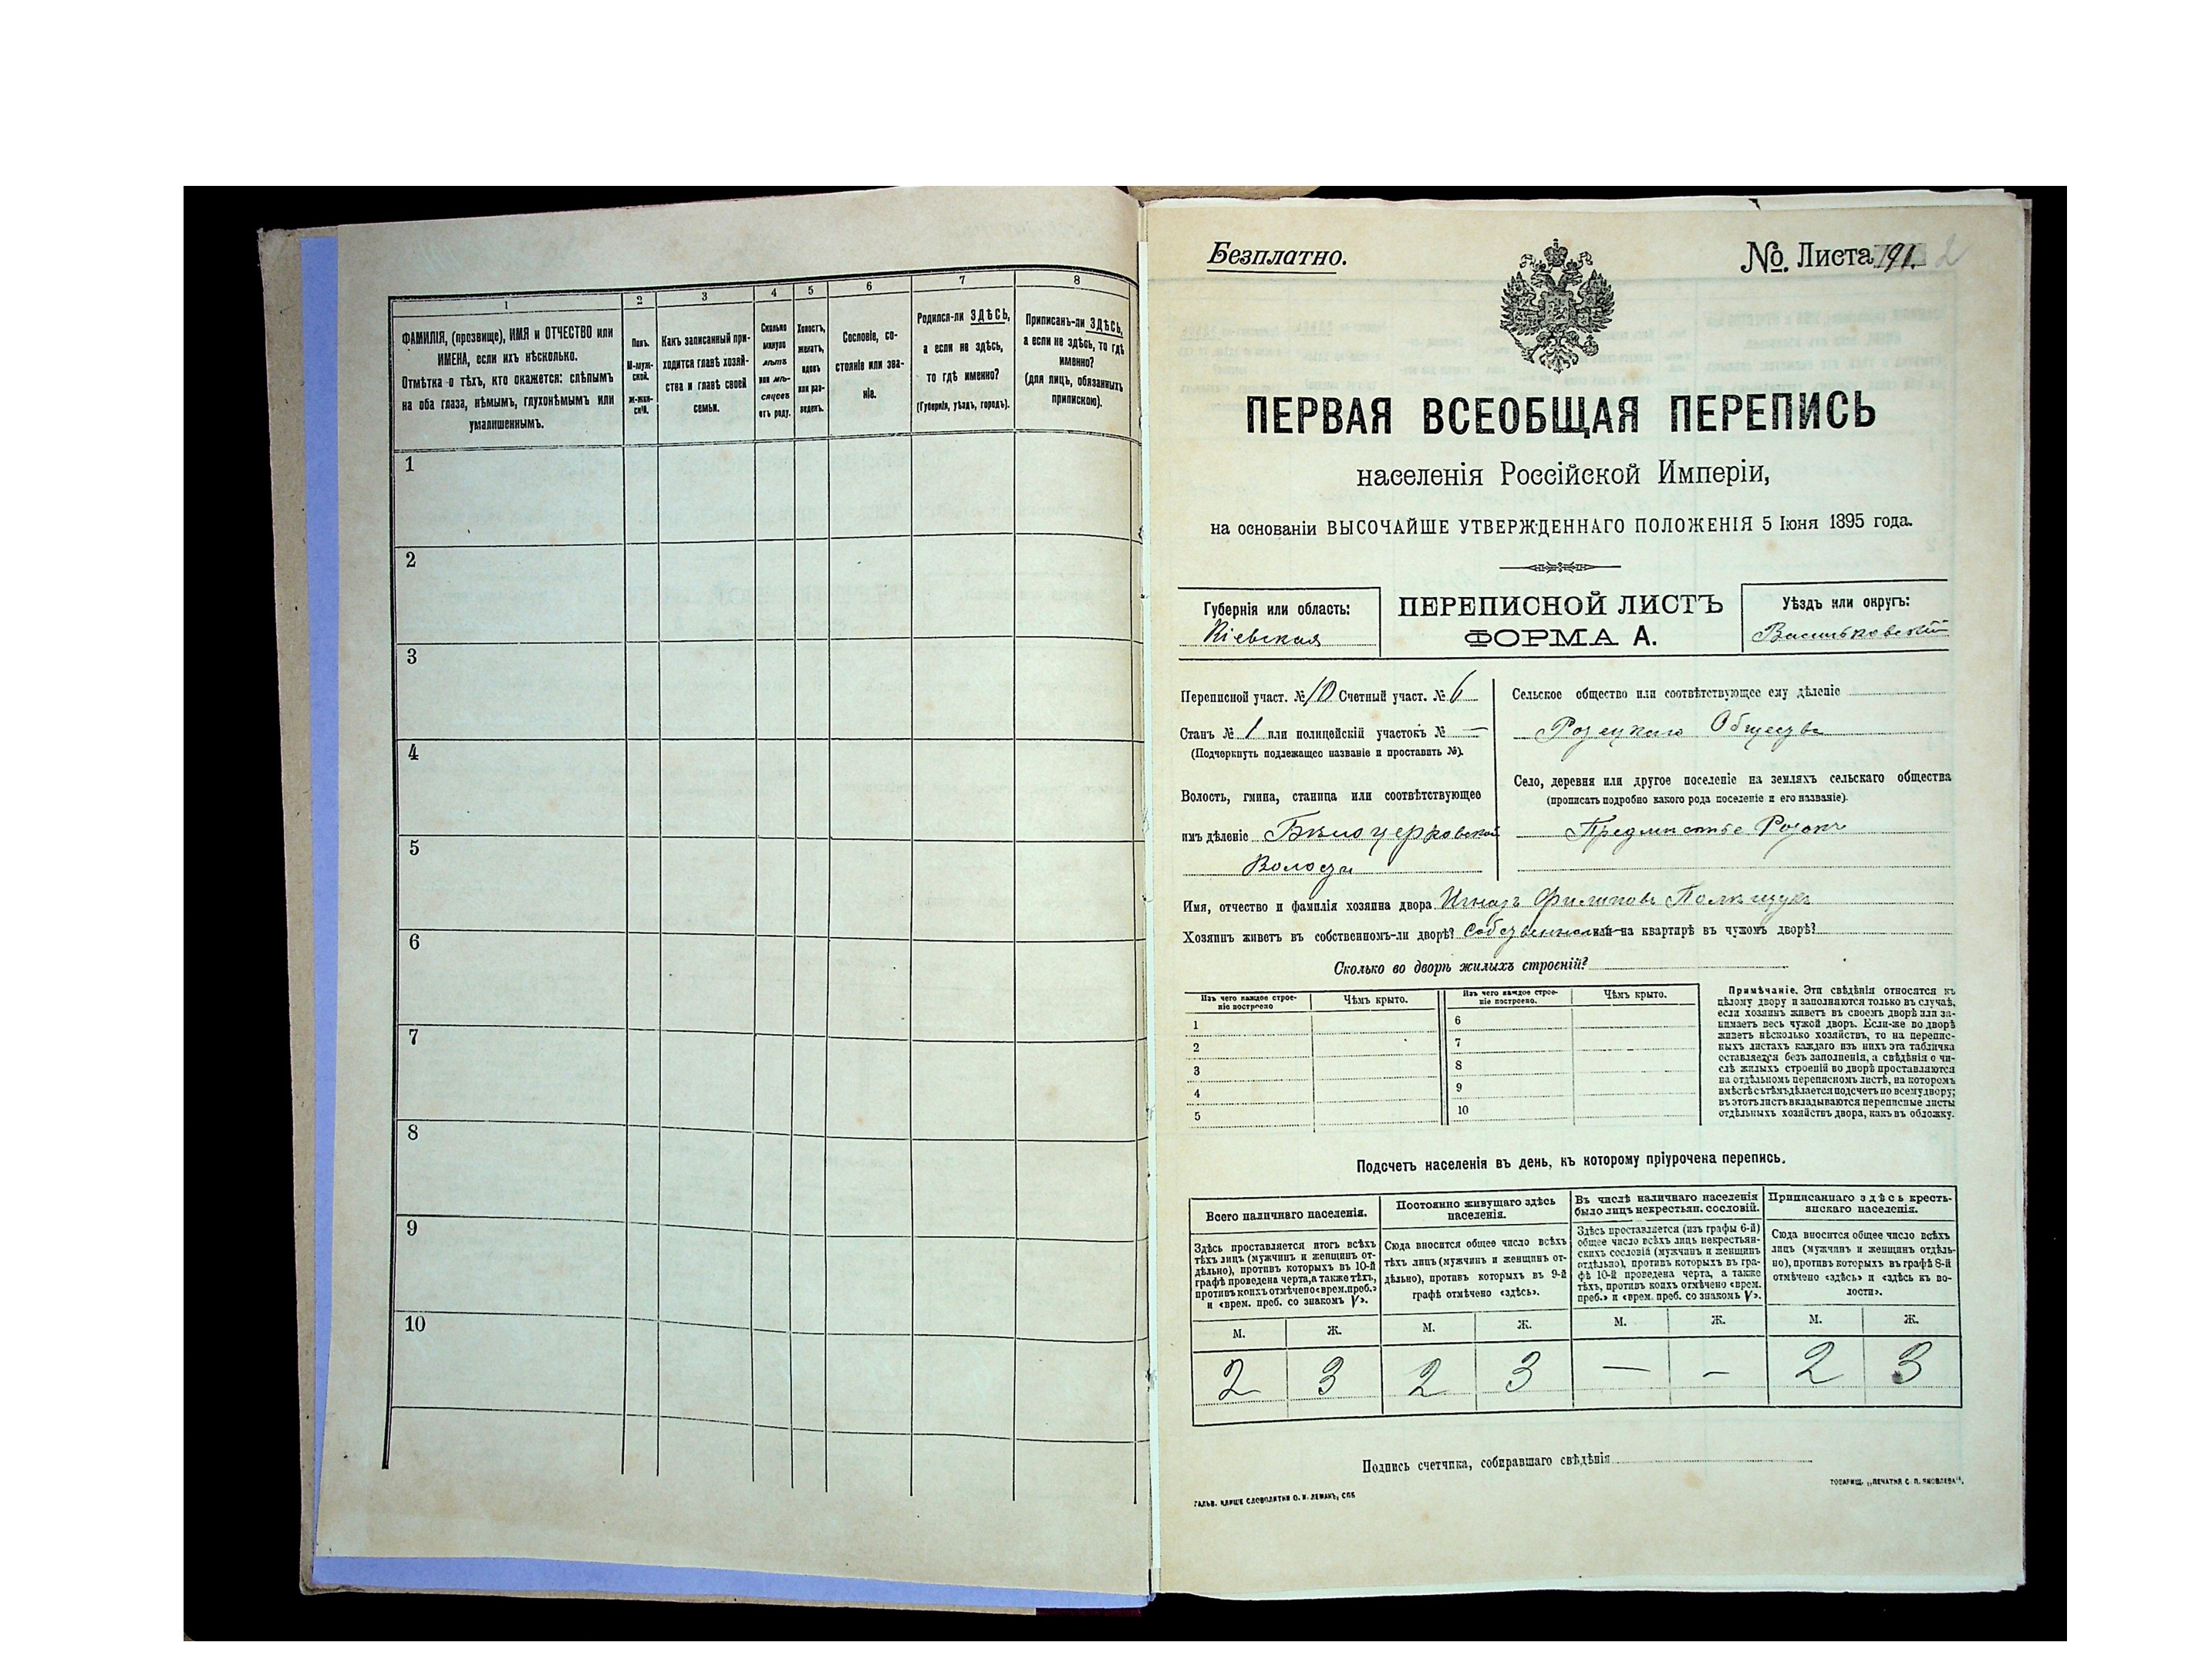 1
2
3
4
5
6
7
8
ФАМИЛІЯ, (прозвище), ИМЯ и ОТЧЕСТВО или
ИМЕНА, если ихъ нѣсколько.
Отмѣтка о тѣхъ, кто окажется: слѣпымъ
на оба глаза, нѣмымъ, глухонѣмымъ или
умалишеннымъ.
Полъ.
М-муж-
ской.
ж-жен-
скій.
Какъ записанный при-
ходится главѣ хозяй-
ства и главѣ своей
семьи.
Сколько
минуло
лѣтъ
или мѣ-
сяцевъ
отъ роду.
Холостъ,
женатъ,
вдовъ
или раз-
веденъ.
Сословіе, со-
стояніе или зва-
ніе.
Родился-ли ЗДѢСЬ,
а если не здѣсь,
то гдѣ именно?
(Губернія, уѣздъ, городъ).
Приписанъ-ли ЗДѢСЬ,
а если не здѣсь, то гдѣ
именно?
(для лицъ, обязанныхъ
припискою).
1
2
3
4
5
6
7
8
9
10
Безплатно.
№ Листа 191. 2
ПЕРВАЯ ВСЕОБЩАЯ ПЕРЕПИСЬ
населенія Россійской Имперіи,
на основаніи ВЫСОЧАЙШЕ УТВЕРЖДЕННАГО ПОЛОЖЕНІЯ 5 Іюня 1895 года.
Губернія или область:
Кіевская
ПЕРЕПИСНОЙ ЛИСТЪ
ФОРМА А.
Уѣздъ или округъ:
Васильковскій
Переписной участ. № 10 Счетный участ. № 6
Станъ № 1 или полицейскій участокъ № —
(Подчеркнуть подлежащее названіе и проставить №).
Волость, гмина, станица или соотвѣтствующее
имъ дѣленіе Бѣлоцерковской
Волости
Сельское общество или соотвѣтствующее ему дѣленіе
Роецкаго Общества
Село, деревня или другое поселеніе на земляхъ сельскаго общества
(прописать подробно какого рода поселеніе и его названіе).
Предмѣстье
Имя, отчество и фамилія хозяина двора Игнатъ Филиповъ Полищукъ
Хозяинъ живетъ въ собственномъ-ли дворѣ? Собственномъ или на квартирѣ въ чужомъ дворѣ?
Сколько во дворѣ жилыхъ строеній?
Изъ чего каждое строе-
ніе построено
Чѣмъ крыто.
Изъ чего каждое строе-
ніе построено.
Чѣмъ крыто.
1
2
3
4
5
6
7
8
9
10
Примѣчаніе. Эти свѣдѣнія относятся къ
цѣлому двору и заполняются только въ случаѣ,
если хозяинъ живетъ въ своемъ дворѣ или за-
нимаетъ весь чужой дворъ. Если-же во дворѣ
живетъ нѣсколько хозяйствъ, то на перепис-
ныхъ листахъ каждаго изъ нихъ эта табличка
оставляется безъ заполненія, а свѣдѣнія о чи-
слѣ жилыхъ строеній во дворѣ проставляются
на отдѣльномъ переписномъ листѣ, на которомъ
вмѣстѣ съ тѣмъ дѣлается подсчетъ по всему двору;
въ этотъ листъ вкладываются переписные листы
отдѣльныхъ хозяйствъ двора, какъ въ обложку.
Подсчетъ населенія въ день, къ которому пріурочена перепись.
Всего наличнаго населенія.
Здѣсь проставляется итогъ всѣхъ
тѣхъ лицъ (мужчинъ и женщинъ от-
дѣльно), противъ которыхъ въ 10-й
графѣ проведена черта, а также тѣхъ,
противъ коихъ отмѣчено «врем. преб.»
и «врем. преб. со знакомъ V».
Постоянно живущаго здѣсь
населенія.
Сюда вносится общее число всѣхъ
тѣхъ лицъ (мужчинъ и женщинъ от-
дѣльно), противъ которыхъ въ 9-й
графѣ отмѣчено «здѣсь».
Въ числѣ наличнаго населенія
было лицъ некрестьян. сословій.
Здѣсь проставляется (изъ графы 6-й)
общее число всѣхъ лицъ некрестьян-
скихъ сословій (мужчинъ и женщинъ
отдѣльно), противъ которыхъ въ гра-
фѣ 10-й проведена черта, а также
тѣхъ, противъ коихъ отмѣчено «врем.
преб.» и «врем. преб. со знакомъ V».
Приписаннаго здѣсь кресть-
янскаго населенія.
Сюда вносится общее число всѣхъ
лицъ (мужчинъ и женщинъ отдѣль-
но), противъ которыхъ въ графѣ 8-й
отмѣчено «здѣсь» и «здѣсь къ во-
лости».
М. Ж. М. Ж. М. Ж. М. Ж.
2 3 2 3 — - 2 3
Подпись счетчика, собиравшаго свѣдѣнія
ГАЛЬВ. КЛИШЕ СЛОВОЛИТНИ О. И. ЛЕМАНЪ, СПБ
ТОВАРИЩ. „ПЕЧАТНЯ С. П. ЯКОВЛЕВА“.